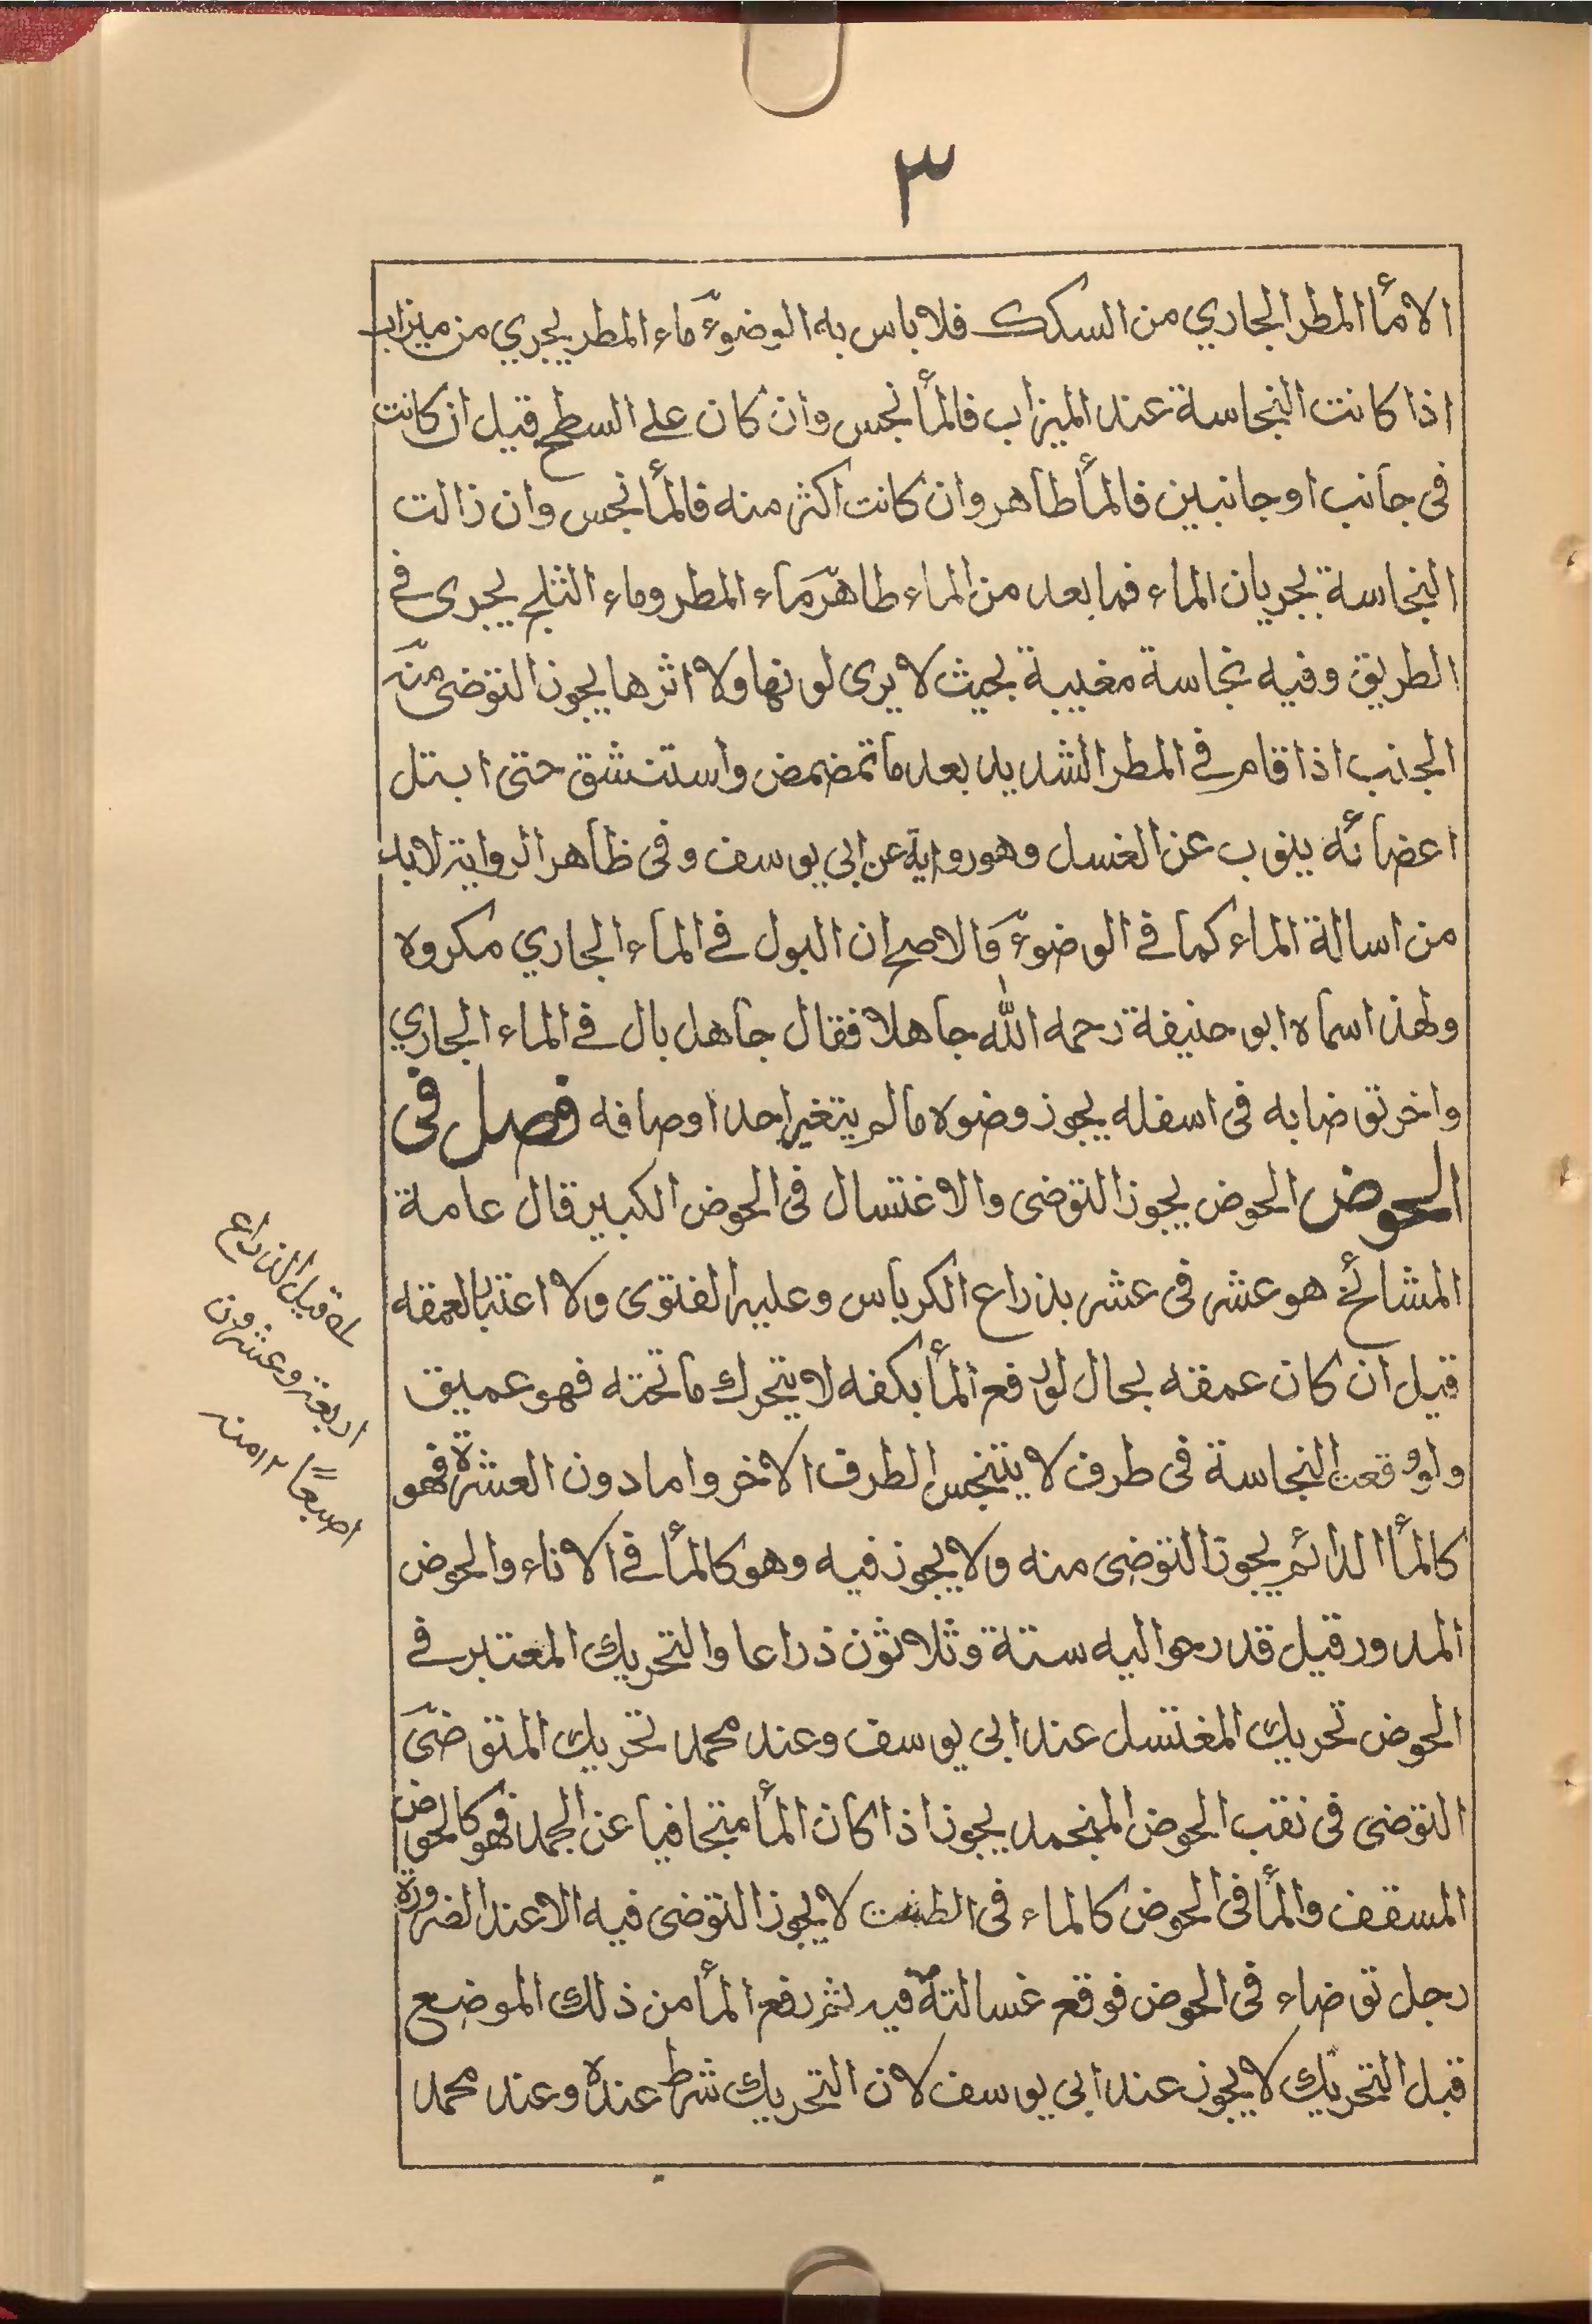 ٣
الا مأ المطر الجاري من السكك فلا باس به الوضوءٌ ماء المطر يجري من ميزاب
اذا كانت النجاسة عند الميزاب فالمأ نجس وان كان على السطح قيل ان كانت
فى جانب او جانبين فالمأ طاهر وان كانت اكثر منه فالمأ نجس وان زالت
النجاسة بجريان الماء فما بعد من الماء طاهر ماء المطر وماء الثلج يجرى فى
الطريق وفيه نجاسة مغيبة بحيث لا يرى لونها ولا اثرها يجوز التوضى منه
الجنب اذا قام فى المطر الشديد بعد ما تمضمض واستنشق حتى ابتل
اعضائه ينوب عن الغسل وهو رواية عن ابي يوسف وفى ظاهر الرواية لابد
من اسالة الماء كما فى الوضوءٌ والاصح ان البول فى الماء الجاري مكروه
ولهذا سماه ابو حنيفة رحمه الله جاهلا فقال جاهل بال فى الماء الجاري
واخر توضا به فى اسفله يجوز وضوه ما لم يتغير احد اوصافه فصل فى
الحوض الحوض يجوز التوضى والاغتسال فى الحوض الكبير قال عامة
المشائخ هو عشر فى عشر بذراع الكرباس وعليه الفتوى ولا اعتبا لعمقه
قيل ان كان عمقه بحال لو رفع المأ بكفه لا يتحرك ما تحته فهو عميق
ولو وقعت النجاسة فى طرف لا يتنجس الطرف الاخر واما دون العشرة فهو
كالمأ الدائم يجوز التوضى منه ولا يجوز فيه وهو كالمأ فى الاناء والحوض
المدور قيل قدر حواليه ستة وثلاثون ذراعا والتحريك المعتبر فى
الحوض تحريك المغتسل عند ابى يوسف وعند محمد تحريك المتوضى
التوضى فى نقب الحوض المنجمد يجوز اذا كان المأ متجافيا عن الجمد فهو كالحوض
المسقف والمأ فى الحوض كالماء فى الطشت لا يجوز التوضى فيه الا عند الضرورة
رجل توضاء فى الحوض فوقع غسالته فيه ثم رفع المأ من ذلك الموضع
قبل التحريك لا يجوز عند ابي يوسف لان التحريك شرط عنده وعند محمد
له قيل الذراع
اربعة وعشرون
اصبعًا ١٢ منه